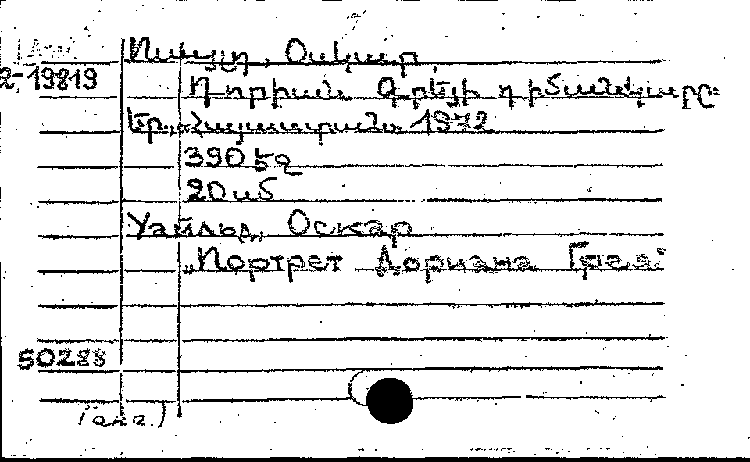 Ուայլդ, Օսկար
2-19819
Դորիան Գրեյի դիմանկարը
Եր., Հայաստան 1972
390 էջ
20 սմ
Уайльд, Оскар
„Портрет Дориана Грея"
50288